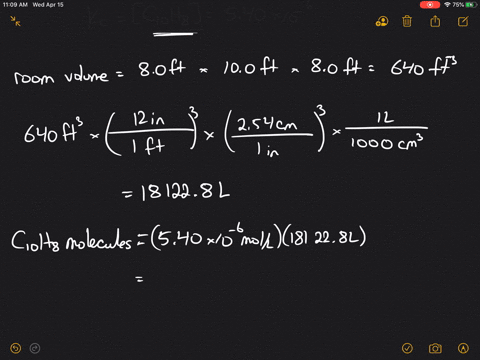 11:09 AM Wed Apr 15
75%
room volume = 8.0 ft × 10.0 ft × 8.0 ft = 640 ft³
640 ft³ × (12 in / 1 ft)³ × (2.54 cm / 1 in)³ × 1L / 1000 cm³
= 18122.8 L
C₁₀H₈ molecules = (5.40 × 10⁻⁶ mol/L)(18122.8 L)
=